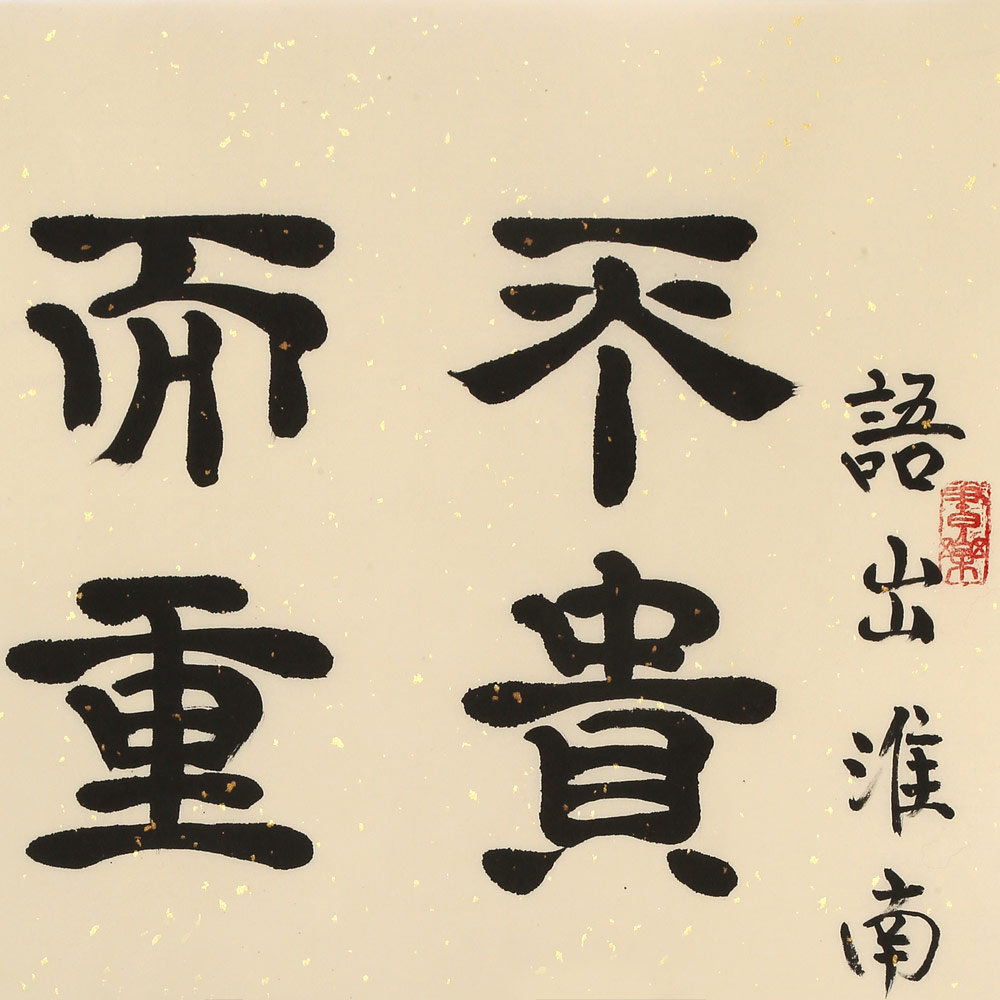 語出淮南
不貴
而重